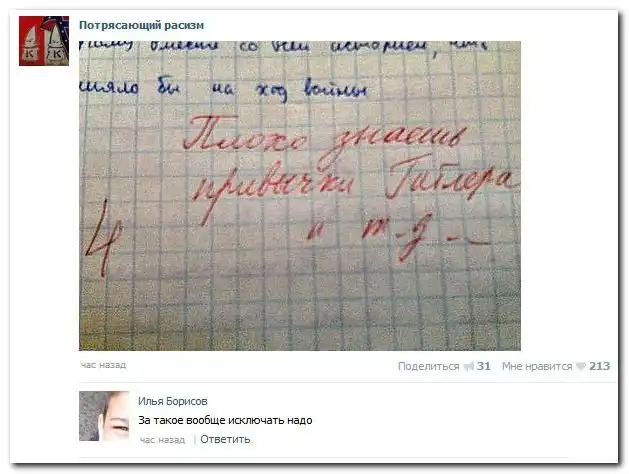 Потрясающий расизм
K K
вместе со всей историей, что
бы на ход войны
Плохо знаешь
привычки Гитлера
и т.д..
4
час назад
Поделиться 31 Мне нравится 213
Илья Борисов
За такое вообще исключать надо
час назад | Ответить